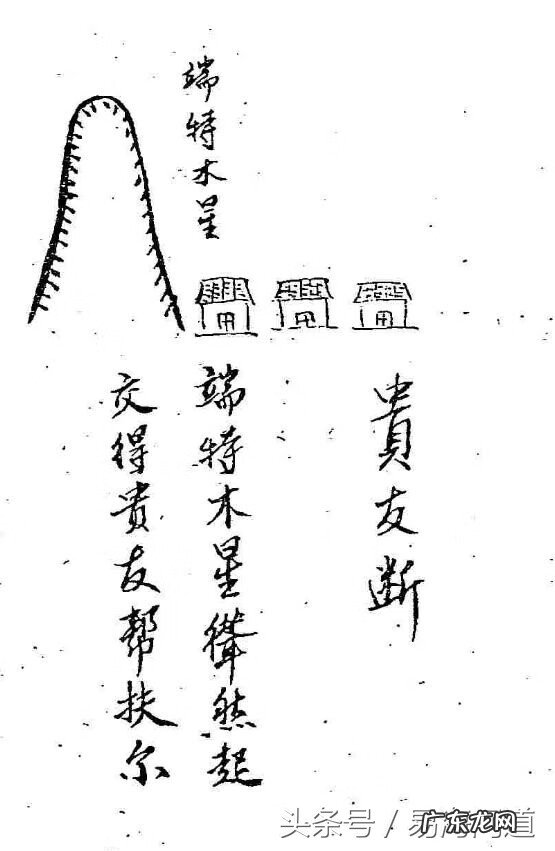 端特木星
貴友断
端特木星聳然起
交得贵友帮扶尔
头条号／易
广东龙网
道